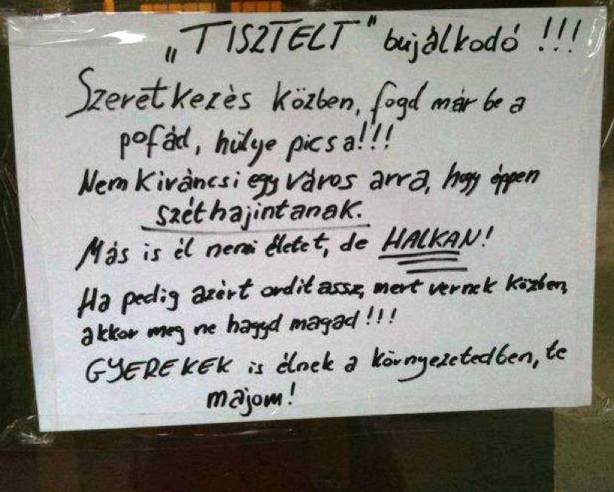 „TISZTELT" bujálkodó !!!
Szeretkezés közben, fogd már be a
pofád, hülye picsa!!!
Nem kiváncsi egy város arra, hogy éppen
széthajintanak.
Más is él nemi életet, de HALKAN!
Ha pedig azért orditassz, mert vernek közben,
akkor meg ne hagyd magad!!!
GYEREKEK is élnek a környezetedben, te
majom!